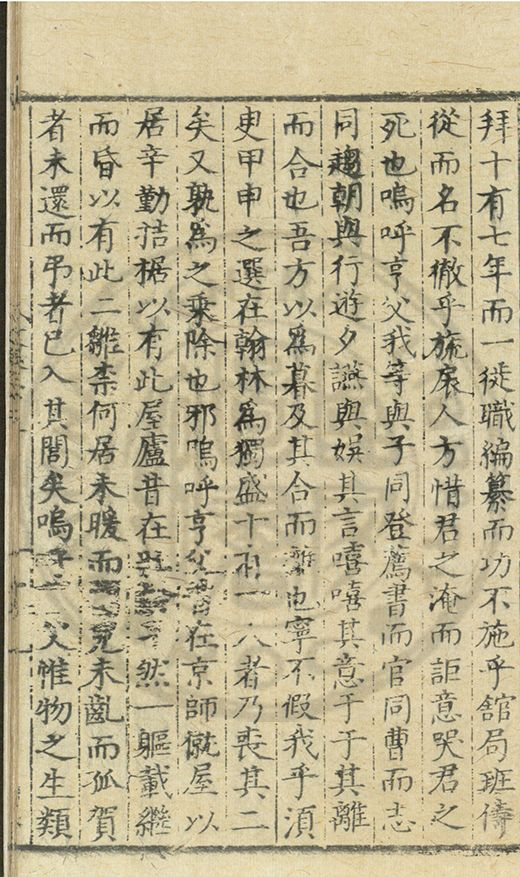 拜十有七年而一徙職編纂而功不施乎舘局班儔
從而名不徹乎旒扆人方惜君之淹而詎意哭君之
死也嗚呼亨父我等與子同登薦書而官同曹而志
同趨朝與行遊夕讌與娱其言嘻嘻其意于于其離
而合也吾方以爲暮及其合而離也寧不假我乎須
臾甲申之選在翰林爲獨盛十有一人者乃喪其二
矣又孰爲之乘除也邪嗚呼亨父昔在京師僦屋以
居辛勤拮据以有此屋廬昔在然一軀載繼
而昏以有此二雛柰何居未暖而兒未齓而孤賀
者未還而弔者已入其閭矣嗚父惟物之生類